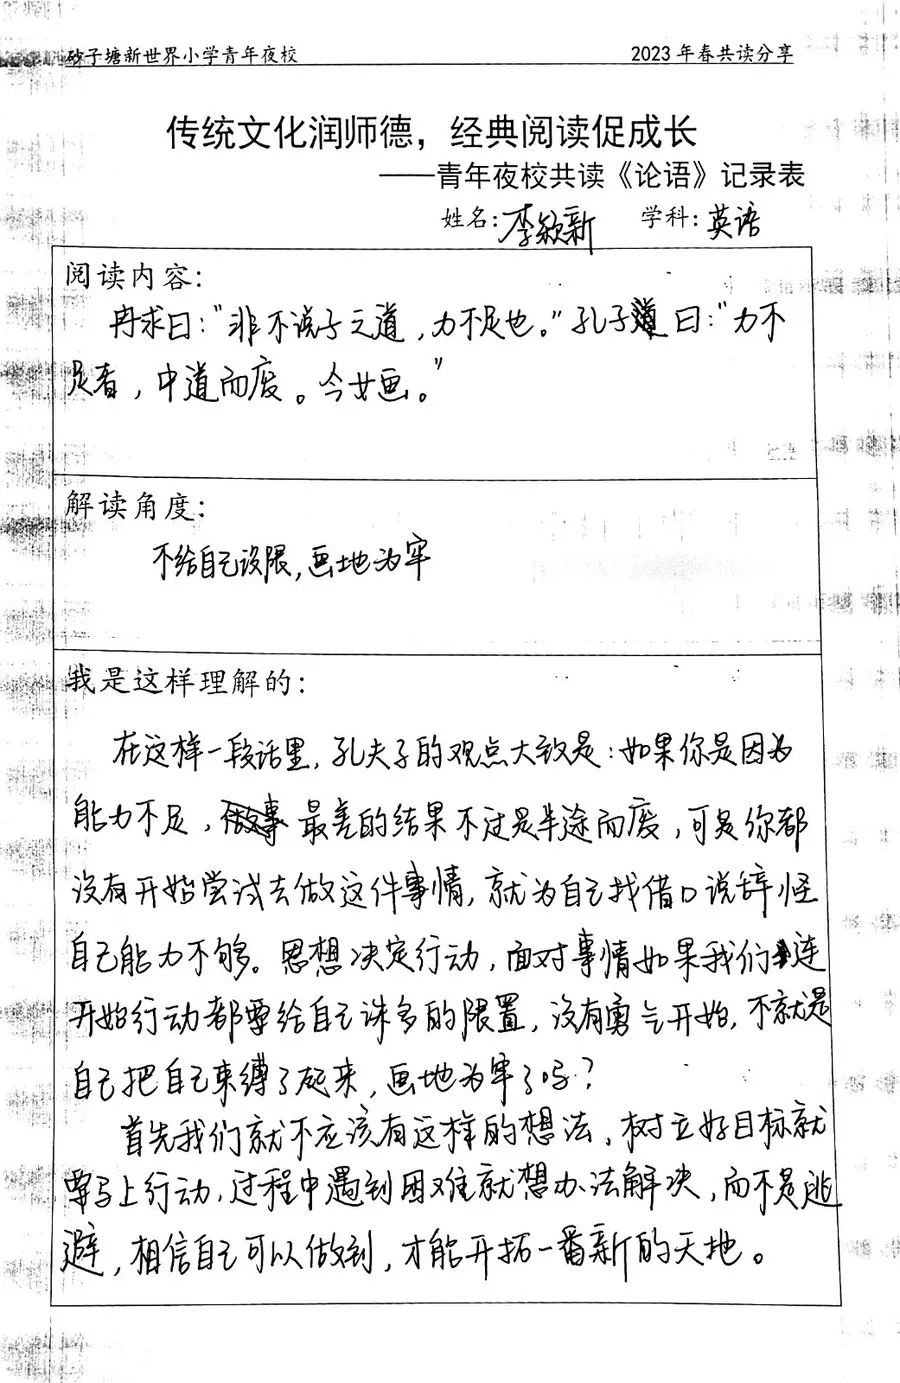 砂子塘新世界小学青年夜校 2023年春共读分享
传统文化润师德，经典阅读促成长
——青年夜校共读《论语》记录表
姓名：李欣新 学科：英语
阅读内容：
冉求曰：“非不说子之道，力不足也。”孔子曰：“力不
足者，中道而废。今女画。”
解读角度：
不给自己设限，画地为牢
我是这样理解的：
在这样一段话里，孔夫子的观点大致是：如果你是因为
能力不足，最差的结果不过是半途而废，可是你都
没有开始尝试去做这件事情，就为自己找借口说辞怪
自己能力不够。思想决定行动，面对事情如果我们连
开始行动都要给自己诸多的限置，没有勇气开始，不就是
自己把自己束缚了起来，画地为牢了吗？
首先我们就不应该有这样的想法，树立好目标就
要马上行动，过程中遇到困难就想办法解决，而不是逃
避，相信自己可以做到，才能开拓一番新的天地。